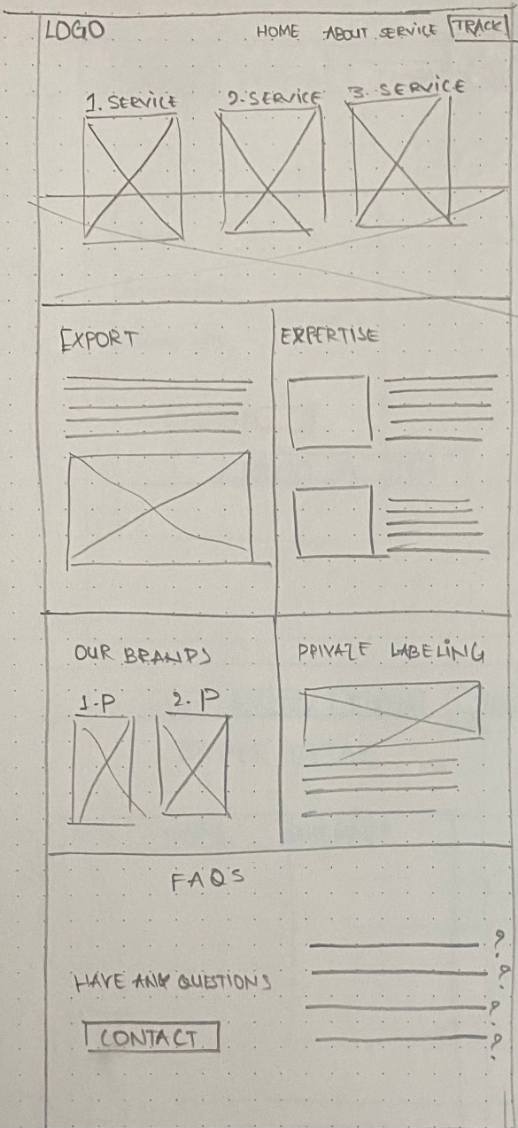 LOGO
HOME ABOUT SERVICE TRACK
1. SERVICE 2. SERVICE 3. SERVICE
EXPORT
EXPERTISE
OUR BRANDS
1.P 2. P
PRIVATE LABELING
FAQS
? 
?
HAVE ANY QUESTIONS
?
CONTACT
?